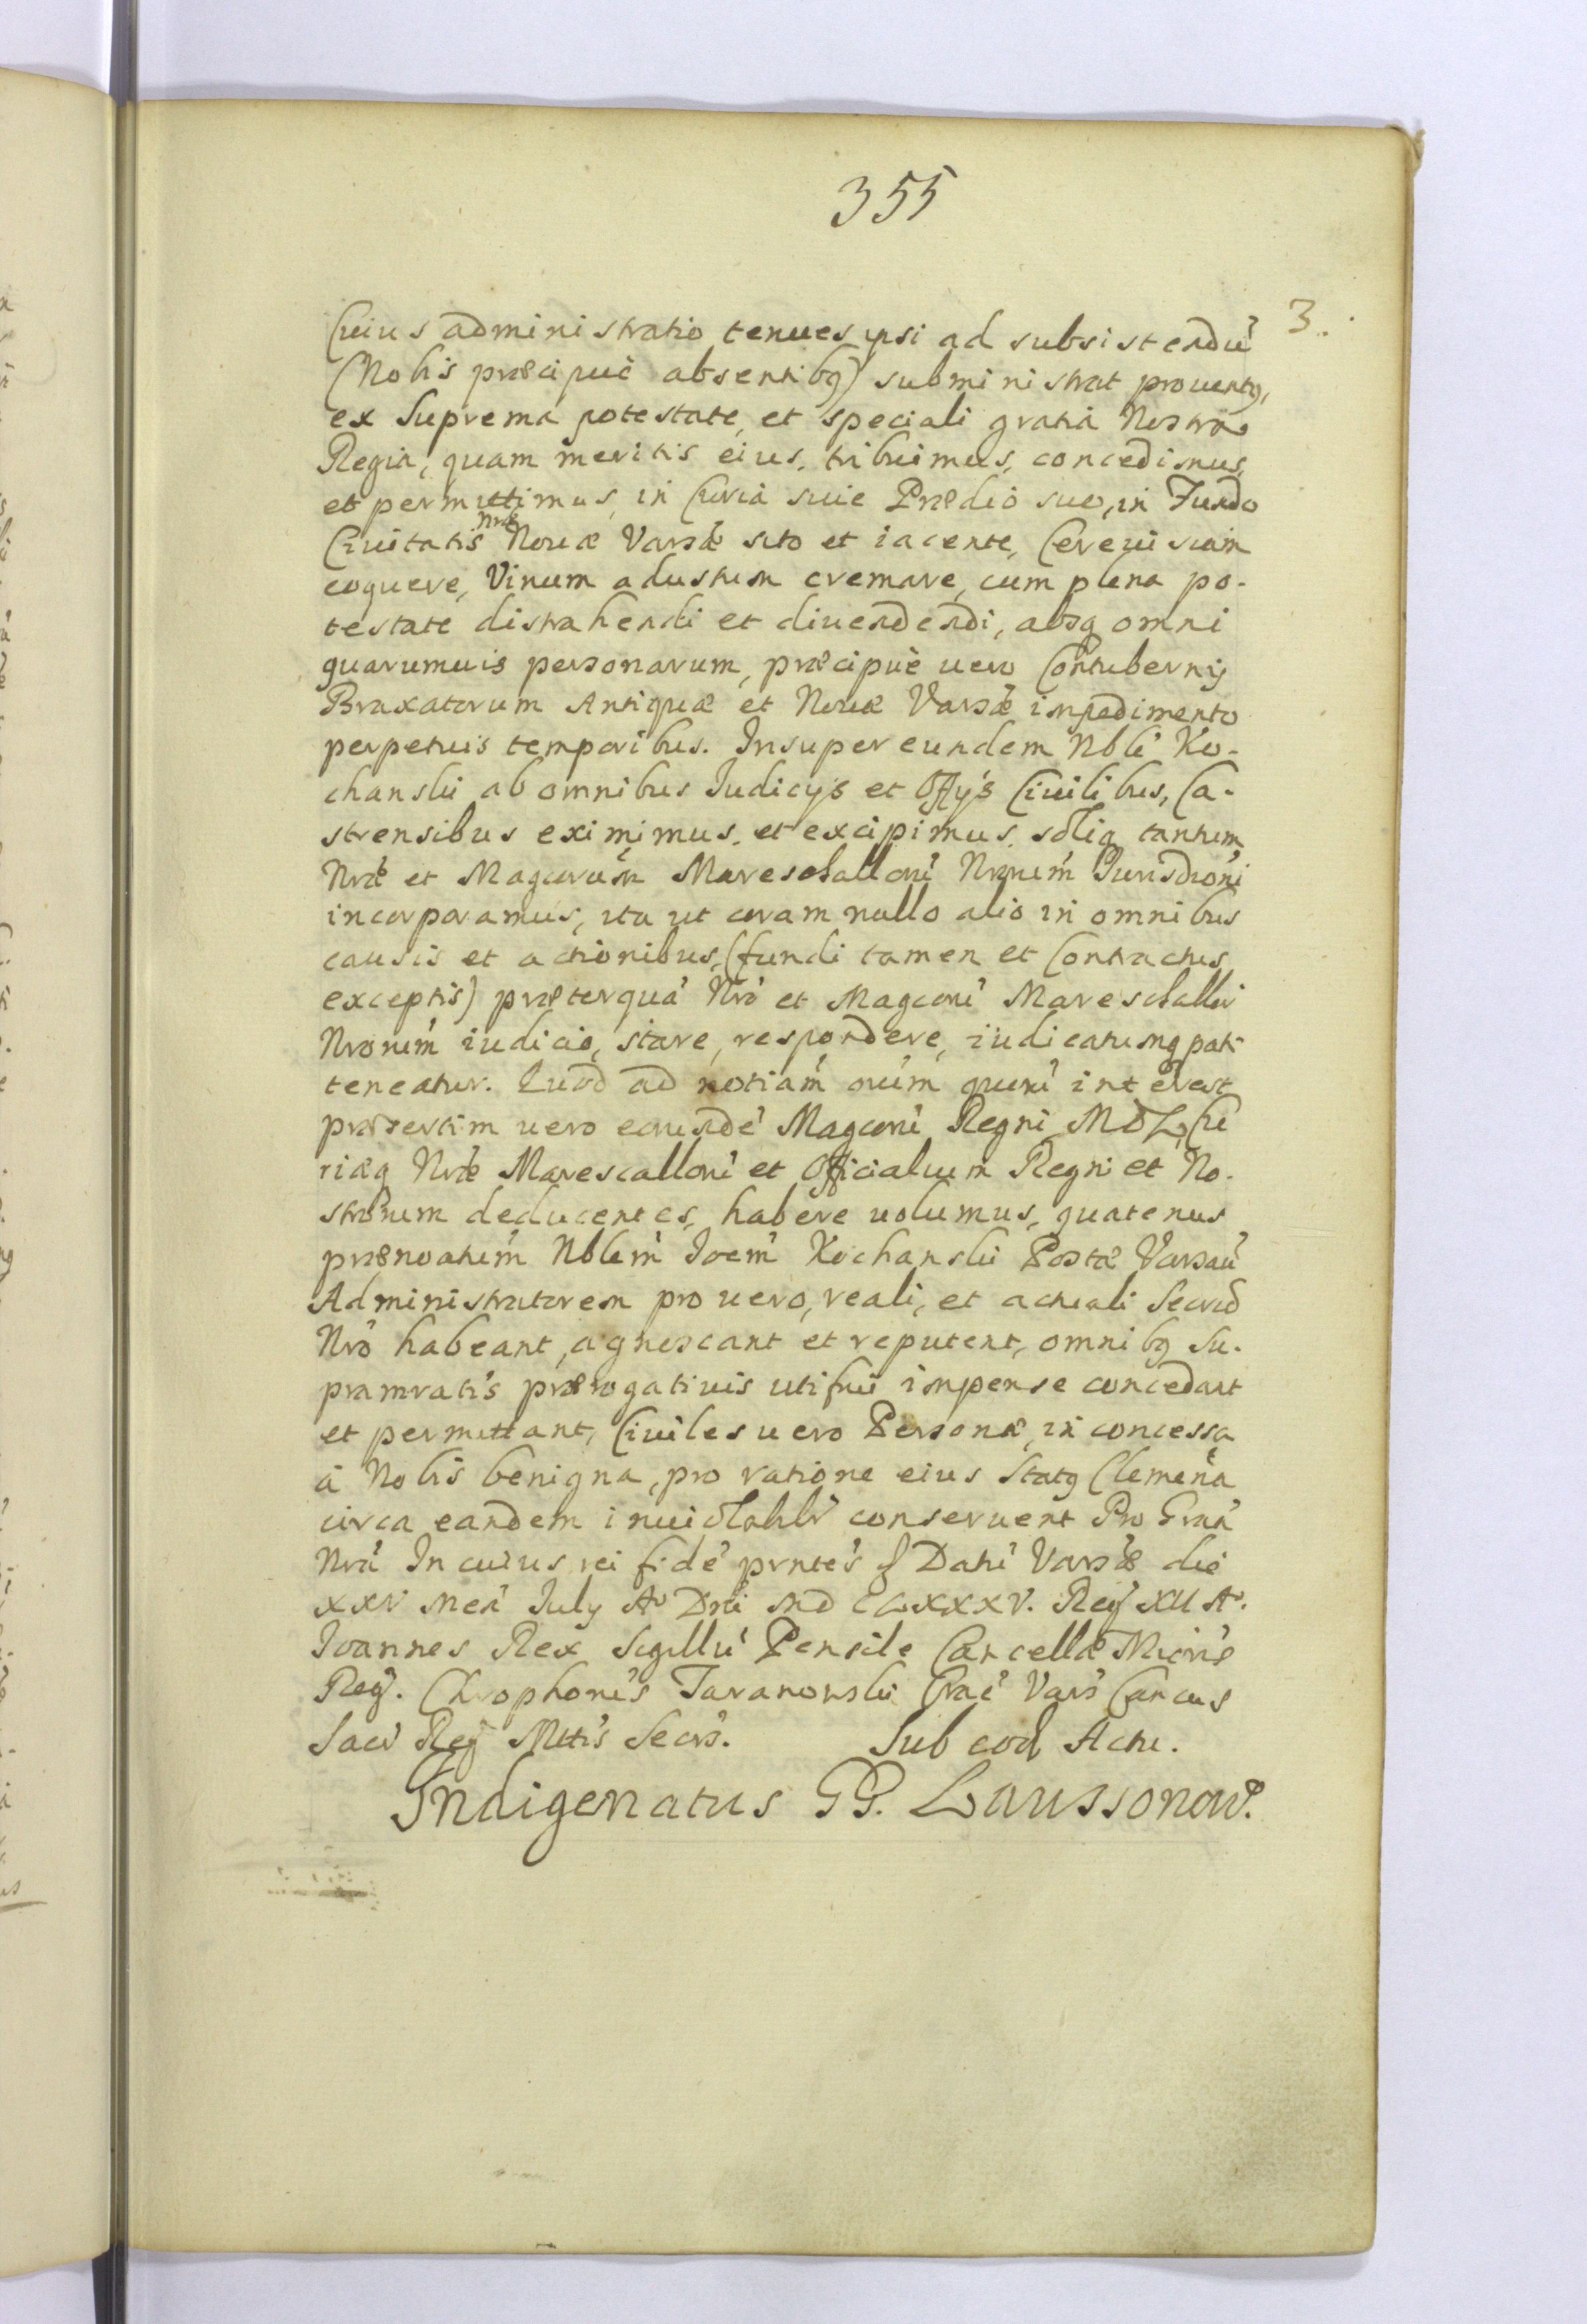 355
3.
Cuius administratio tenues ipsi ad subsistendũ
(Nobis præcipuè absentibq) subministrat prouentq,
ex Suprema potestate, et speciali gratia Nostra
Regia, quam meritis eius, tribuimus, concedimus,
et permittimus, in Curia siue Prædio suo, in Fundo
Ciuitatis Nræ Nouæ Varsæ sito et iacente, Cereuisiam
coquere, Vinum adustum cremare, cum plena po-
testate distrahendi et diuendendi, absq omni
quarumuis personarum, præcipuè uero Contubernij
Braxatorum Antiquæ et Nouæ Varsæ impedimento
perpetuis temporibus. Insuper eundem Nblẽ Ko-
chanski ab omnibus Iudicijs et Offijs Ciuilibus, Ca-
strensibus eximimus, et excipimus, soliq tantum
Nræ et Magcorum Mareschallorũ Nrorum Iurisdrõni
incorporamus, ita ut coram nullo alio in omnibus
causis et actionibus, (fundi tamen et Contractus
exceptis) præterquã Nrõ et Magcorũ Mareschallor
Nrorum iudicio, stare, respondere, iudicatumq pati
teneatur. Quod ad notiam oium quorũ interest
præsertim uero eorundẽ Magcorũ Regni MDL, Cu
riæq Nræ Marescallorũ et Officialium Regni et No-
strorum deducentes, habere uolumus, quatenus
prænoatum Nblem Ioem Kochanski Postæ Varsau
Administratorem pro uero, reali, et actuali Secrio
Nrõ habeant, agnoscant et reputent, omnibq Su-
pramratis prærogatiuis uti frui impense concedant
et permittant, Ciuiles uero Personæ, in concessa
à Nobis benigna, pro ratione eius Statq Clemena
circa eandem inuiolablr conseruent Pro Gra
Nrã In cuius rei fidẽ prntes Datũ Varsæ die
XXV Mea July Ao Dni MDCLXXXV. Regij XII Ao.
Ioannes Rex Sigillũ Pensile Cancellæ Mioris
Reg. Chrophorus Taranowski Vars Cancus
Sacr Reg Mttis Secrs. Sub eod Actu.
Indigenatus GG. Laussonow.